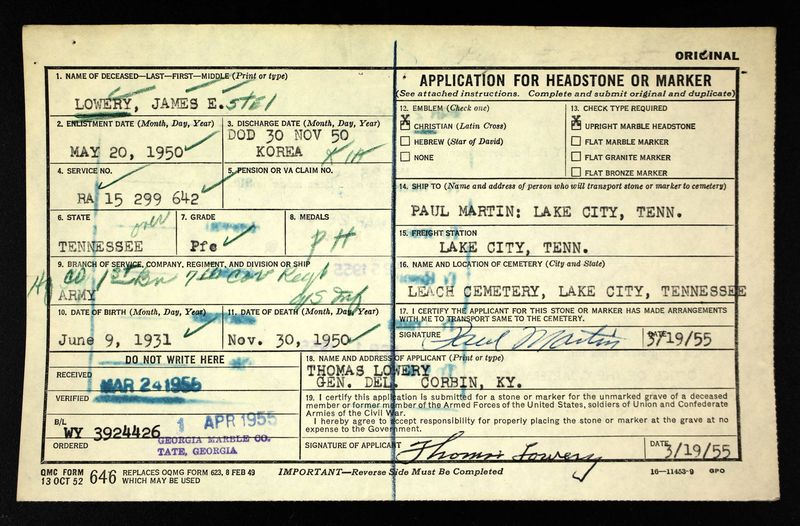 ORIGINAL
1. NAME OF DECEASED—LAST—FIRST—MIDDLE (Print or type)
LOWERY, JAMES E.
2. ENLISTMENT DATE (Month, Day, Year)
MAY 20, 1950
3. DISCHARGE DATE (Month, Day, Year)
DOD 30 NOV 50
KOREA
4. SERVICE NO.
RA 15 299 642
5. PENSION OR VA CLAIM NO.
6. STATE
over
TENNESSEE
7. GRADE
Pfc
8. MEDALS
P H
9. BRANCH OF SERVICE, COMPANY, REGIMENT, AND DIVISION OR SHIP
Hq Co 1st Bn 7th Cav Regt
ARMY
10. DATE OF BIRTH (Month, Day, Year)
June 9, 1931
11. DATE OF DEATH (Month, Day, Year)
Nov. 30, 1950
DO NOT WRITE HERE
RECEIVED
MAR 24 1955
VERIFIED
B/L
WY 3924426
1 APR 1955
ORDERED
GEORGIA MARBLE CO.
TATE, GEORGIA
APPLICATION FOR HEADSTONE OR MARKER
(See attached instructions. Complete and submit original and duplicate)
12. EMBLEM (Check one)
X CHRISTIAN (Latin Cross)
HEBREW (Star of David)
NONE
13. CHECK TYPE REQUIRED
X UPRIGHT MARBLE HEADSTONE
FLAT MARBLE MARKER
FLAT GRANITE MARKER
FLAT BRONZE MARKER
14. SHIP TO (Name and address of person who will transport stone or marker to cemetery)
PAUL MARTIN: LAKE CITY, TENN.
15. FREIGHT STATION
LAKE CITY, TENN.
16. NAME AND LOCATION OF CEMETERY (City and State)
LEACH CEMETERY, LAKE CITY, TENNESSEE
17. I CERTIFY THE APPLICANT FOR THIS STONE OR MARKER HAS MADE ARRANGEMENTS
WITH ME TO TRANSPORT SAME TO THE CEMETERY.
SIGNATURE Paul Martin DATE 3/19/55
18. NAME AND ADDRESS OF APPLICANT (Print or type)
THOMAS LOWERY
GEN. DEL. CORBIN, KY.
19. I certify this application is submitted for a stone or marker for the unmarked grave of a deceased
member or former member of the Armed Forces of the United States, soldiers of Union and Confederate
Armies of the Civil War.
I hereby agree to accept responsibility for properly placing the stone or marker at the grave at no
expense to the Government.
SIGNATURE OF APPLICANT Thomas Lowery DATE 3/19/55
QMC FORM
13 OCT 52 646 REPLACES OQMG FORM 623, 8 FEB 49
WHICH MAY BE USED
IMPORTANT—Reverse Side Must Be Completed
16—11453-9 GPO